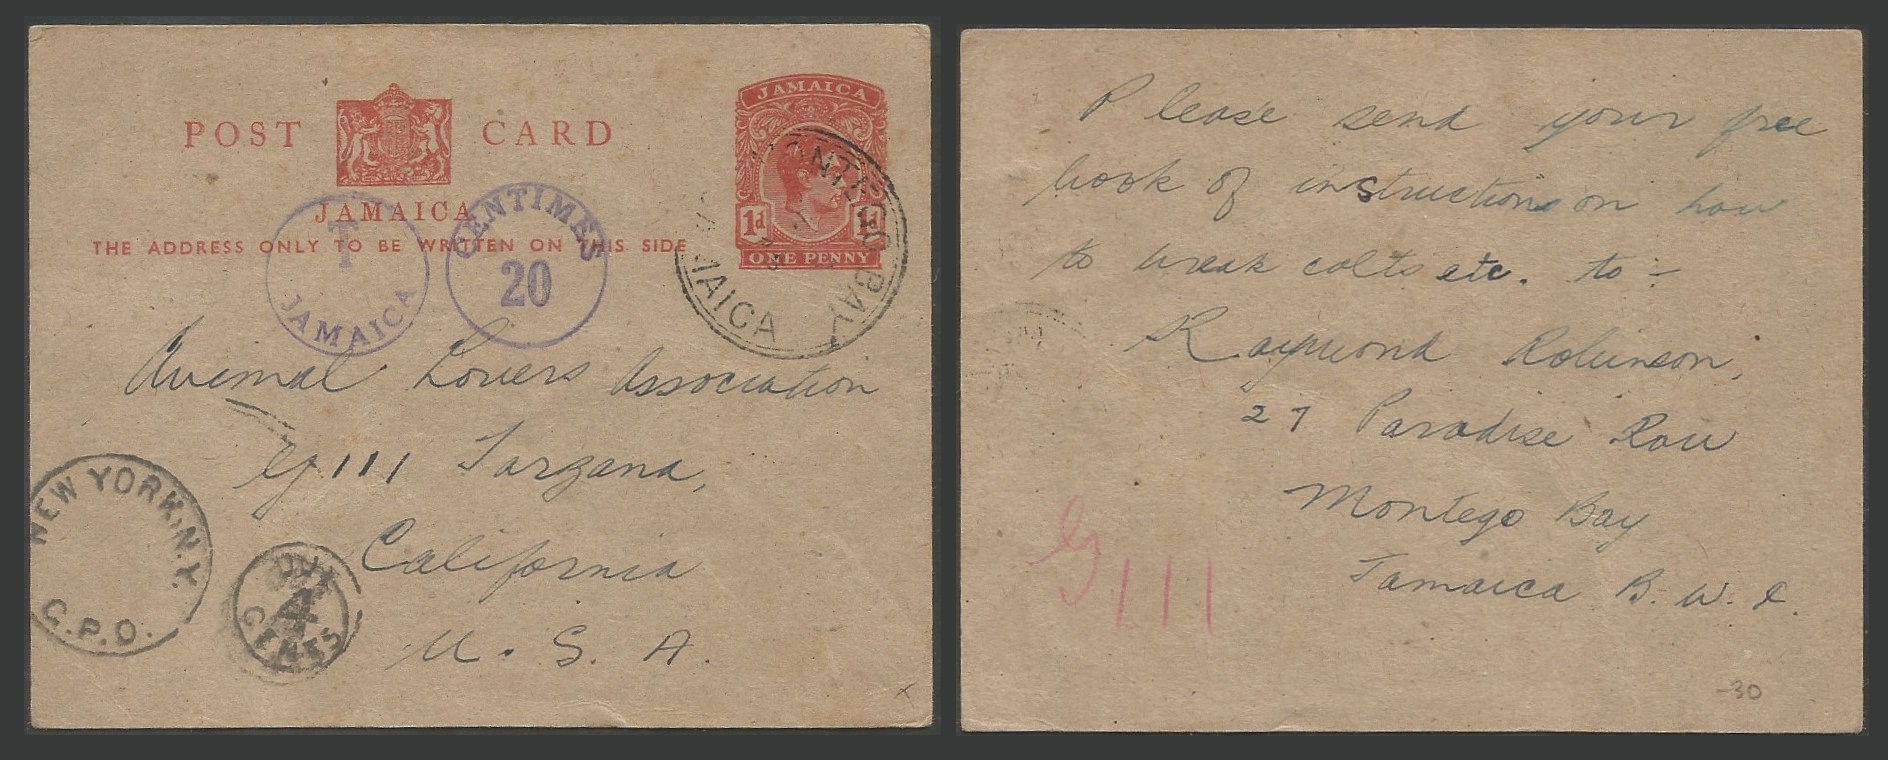 JAMAICA
POST CARD
JAMAICA
THE ADDRESS ONLY TO BE WRITTEN ON THIS SIDE
1d 1d
ONE PENNY
MONTEGO BAY
JAMAICA
T
JAMAICA
CENTIMES
20
Animal Lovers Association
111 Tarzana,
California
U. S. A.
NEW YORK, N.Y.
G.P.O.
DUE
4
CENTS
x
Please send your free
book of instructions on how
to break colts etc. to :-
Raymond Robinson,
27 Paradise Row
Montego Bay
Jamaica B. W. I.
111
-30